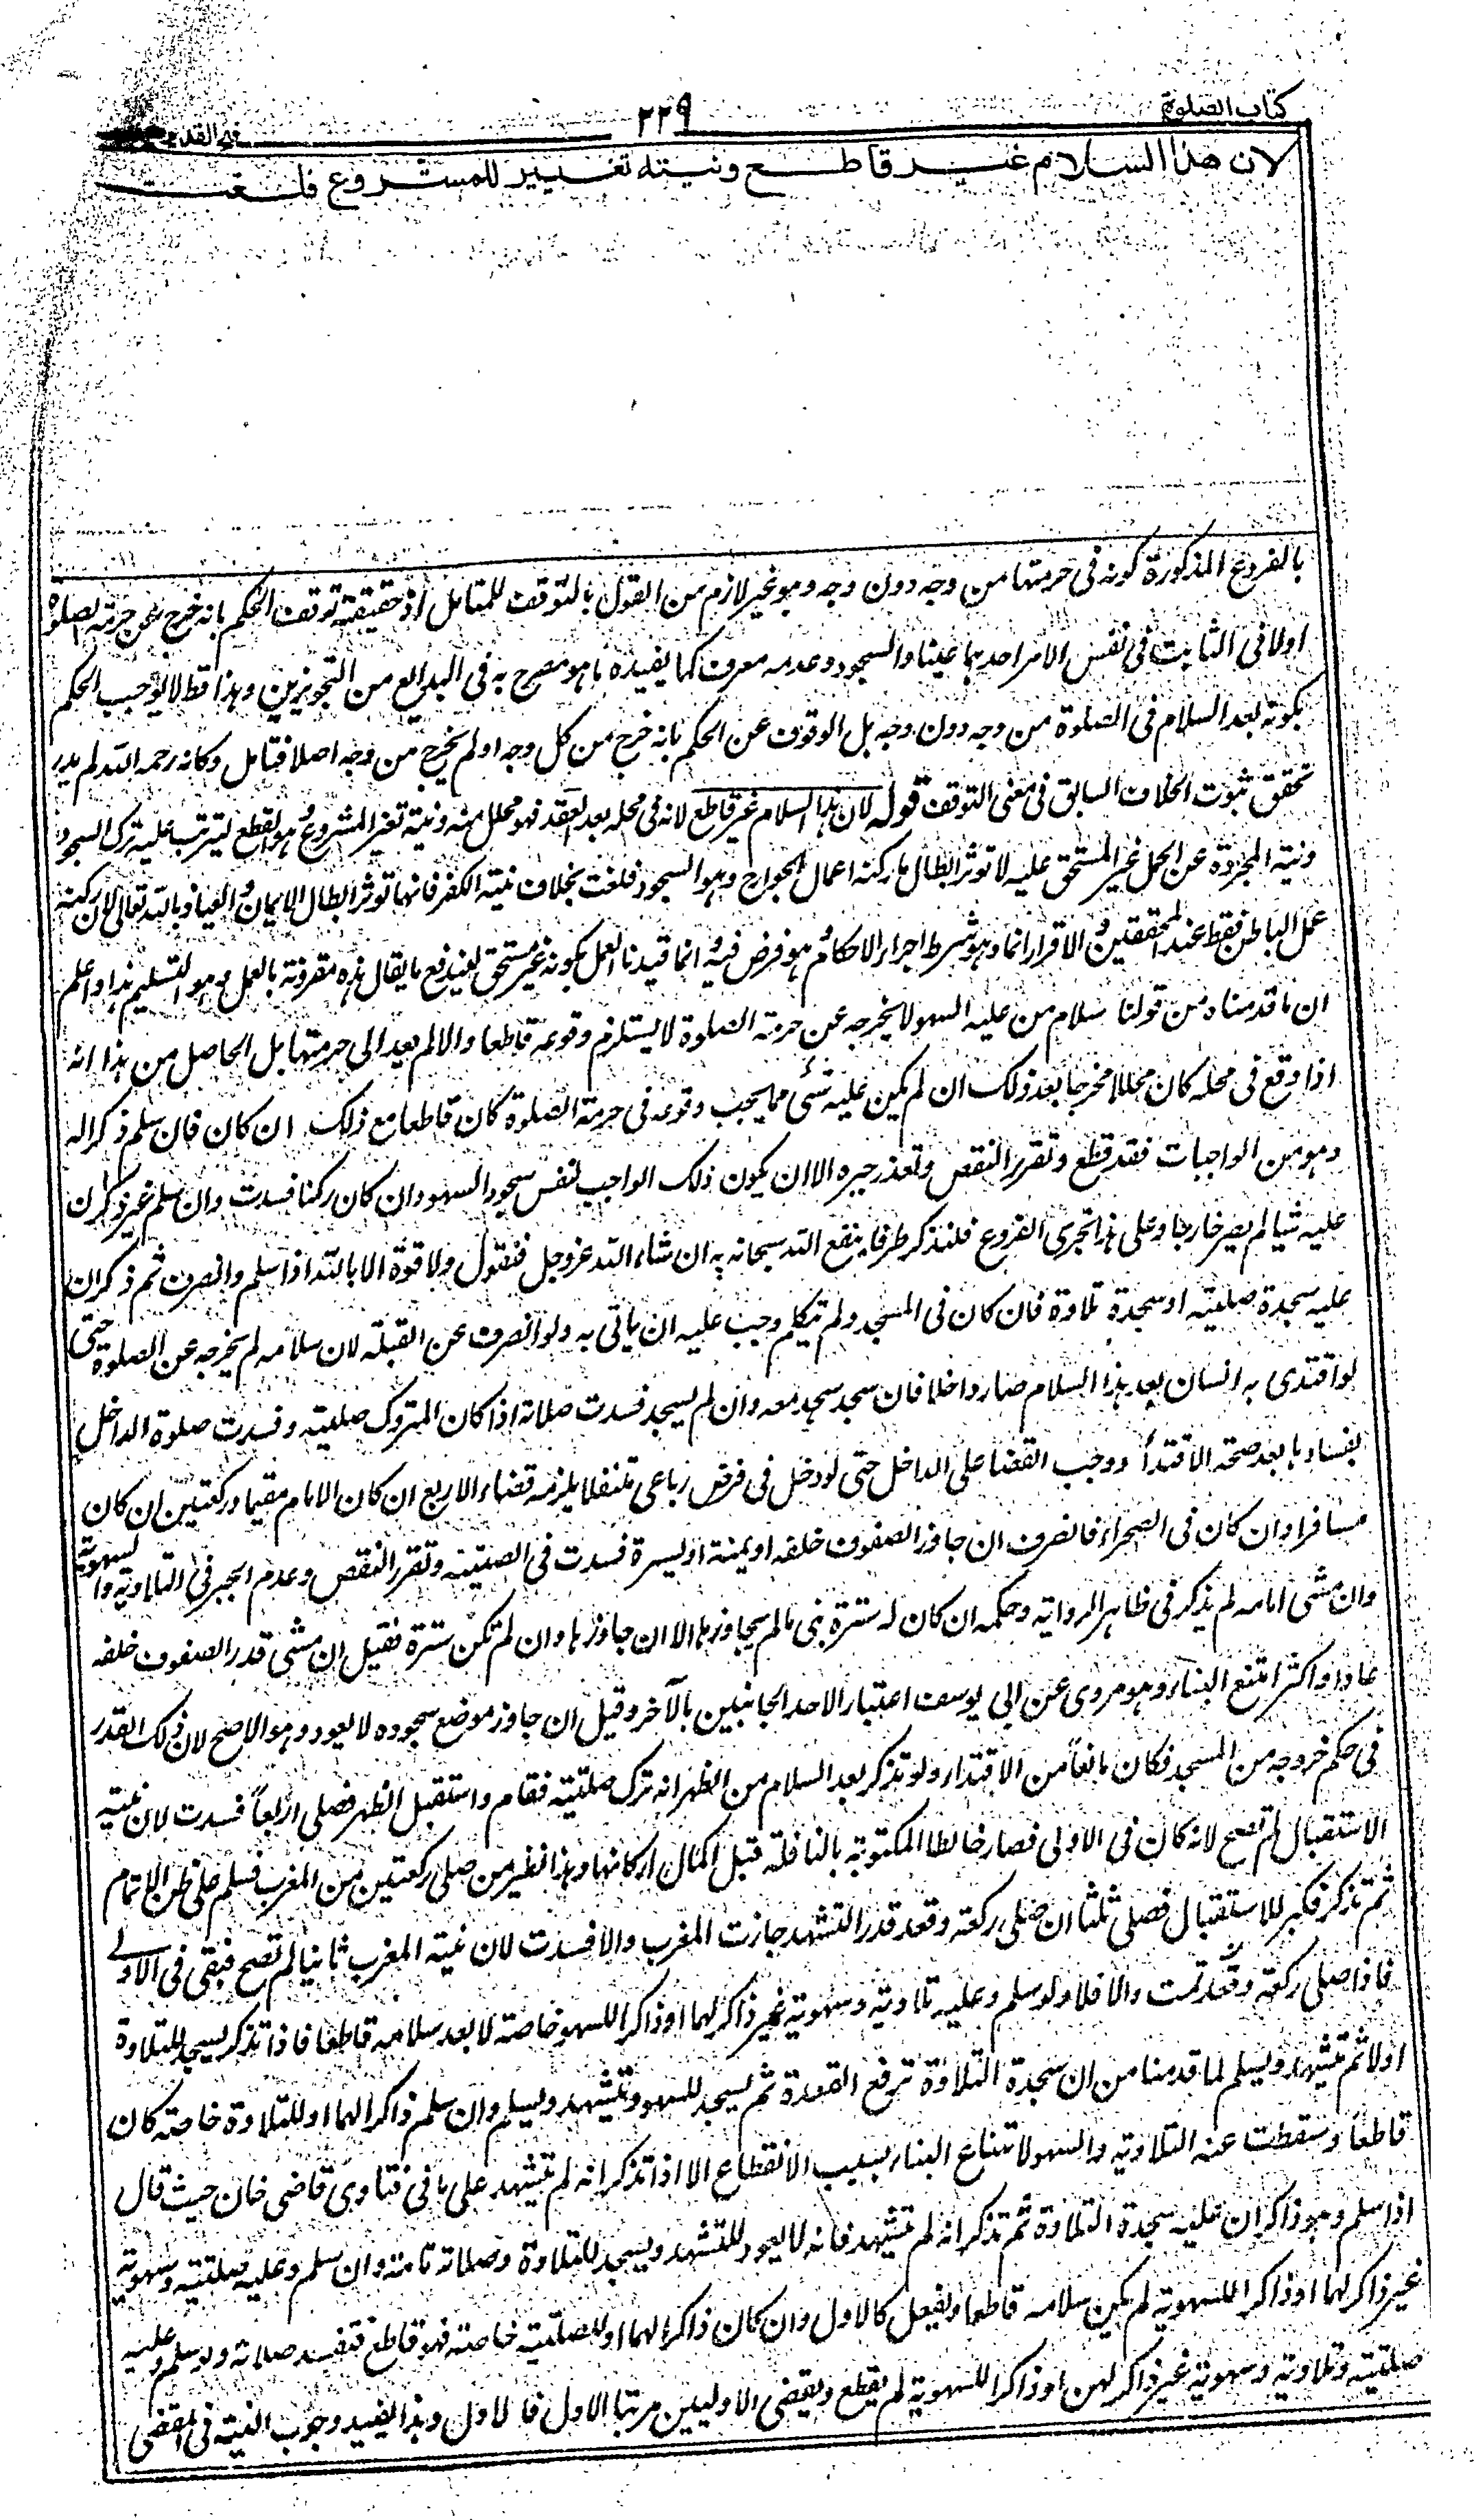 كتاب الصلوة
٢٢٩
فتح القدير
لان هذا السلام غير قاطع ونيته تغيير للمشروع فلغت
بالفروع المذكورة كونه فى حرمتها من وجه دون وجه وهو غير لازم من القول بالتوقف للمتامل اذ حقيقته توقف الحكم بانه خرج عن حرمة الصلوة
اولا فى الثابت فى نفس الامر احدهما عينا والسجود وعدمه معرف كما يفيده ما هو مصرح به فى البدائع من التجويزين وهذا قط لا يوجب الحكم
بكونه بعد السلام فى الصلوة من وجه دون وجه بل الوقوف عن الحكم بانه خرج من كل وجه اولم يخرج من وجه اصلا فتامل وكانه رحمه الله لم يدر
تحقق ثبوت الخلاف السابق فى معنى التوقف قوله لان هذا السلام غير قاطع لانه فى محله بعد القعد فهو محلل منه ونيته تغير المشروع وهو القطع ليترتب عليه ترك السجود
ونية المجردة عن العمل غير المستحق عليه لا توثر ابطال ما ركنه اعمال الجوارح وهو السجود فلغت بخلاف نيته الكفر فانها توثر ابطال الايمان والعياذ بالله تعالى لان ركنه
عمل الباطن فقط عند المحققين والاقرار انما هو شرط اجراء الاحكام وهو فرض فيه وانما قيدنا العمل بكونه غير مستحق ليندفع ما يقال هذه مقرونة بالعمل وهو التسليم هذا واعلم
ان ما قدمناه من قولنا سلام من عليه السهو لا يخرجه عن حرمة الصلوة لا يستلزم وقوعه قاطعا والا لم يعد الى حرمتها بل الحاصل من هذا انه
اذا وقع فى محله كان محللا مخرجا بعد ذلك ان لم يكن عليه شئ مما يجب وقوعه فى حرمة الصلوة كان قاطعا مع ذلك ان كان فان سلم ذاكرا له
وهو من الواجبات فقد قطع وتقرر النقص وتعذر جبره الا ان يكون ذلك الواجب لنفس سجود السهو وان كان ركنا فسدت وان سلم غير ذاكر ان
عليه شيا لم يصر خارجا وعلى هذا تجرى الفروع فلنذكر طرفا ينفع الله سبحانه به ان شاء الله عز وجل فنقول ولا قوة الا بالله اذا سلم وانصرف ثم ذكر ان
عليه سجدة صلبيته او سجدة تلاوة فان كان فى المسجد ولم يتكلم وجب عليه ان ياتى به ولو انصرف عن القبلة لان سلامه لم يخرجه عن الصلوة حتى
لو اقتدى به انسان بعد هذا السلام صار داخلا فان سجد سجد معه وان لم يسجد فسدت صلاته اذا كان المتروك صلبيته وفسدت صلوة الداخل
بفسادها بعد صحة الاقتدأ ووجب القضا على الداخل حتى لو دخل فى فرض رباعى متنفلا يلزمه قضاء الاربع ان كان الامام مقيما وركعتين ان كان
مسافرا وان كان فى الصحراء فانصرف ان جاوز الصفوف خلفه او يمنة او يسرة فسدت فى الصلبيته وتقرر النقص وعدم الجبر فى التلاوته والسهوية
وان مشى امامه لم يذكر فى ظاهر الرواية وحكمه ان كان له سترة بنى ما لم يجاوزها الا ان جاوزها وان لم تكن سترة فقيل ان مشى قدر الصفوف خلفه
عاد او اكثر امتنع البناء وهو مروى عن ابى يوسف اعتبار الاحد الجانبين بالآخر وقيل ان جاوز موضع سجوده لا يعود وهو الاصح لان ذلك القدر
فى حكم خروجه من المسجد فكان مانعاً من الاقتداء ولو تذكر بعد السلام من الظهر انه ترك صلبيته فقام واستقبل الظهر فصلى اربعاً فسدت لان نيته
الاستقبال لم تصح لانه كان فى الاولى فصار خالطا المكتوبة بالنافلة قبل اكمال اركانها وهذا نظير من صلى ركعتين من المغرب فسلم على ظن الاتمام
ثم تذكر فكبر للاستقبال فصلى ثلثا ان صلى ركعة وقعد قدر التشهد جازت المغرب والا فسدت لان نية المغرب ثانيا لم تصح فبقى فى الاولى
فاذا صلى ركعة وقعد تمت والا فلا ولو سلم وعليه تلاوته وسهوية غير ذاكر لهما او ذاكرا للسهو خاصة لا يعد سلامه قاطعا فاذا تذكر يسجد للتلاوة
اولا ثم يتشهد ويسلم لما قدمنا من ان سجدة التلاوة ترفع القعدة ثم يسجد للسهو ويتشهد ويسلم وان سلم ذاكرا لهما او للتلاوة خاصة كان
قاطعاً وسقطت عنه التلاوته والسهو لامتناع البناء بسبب الانقطاع الا اذا تذكر انه لم يتشهد على ما فى فتاوى قاضى خان حيث قال
اذا سلم وهو ذاكر ان عليه سجدة التلاوة ثم تذكر انه لم يتشهد فانه لا يعود للتشهد ويسجد للتلاوة وصلاته تامة وان سلم وعليه صلبيته وسهوية
غير ذاكر لهما او ذاكرا للسهوية لم يكن سلامه قاطعا ويفعل كالاول وان كان ذاكرا لهما او للصلبيته خاصة فهو قاطع فتفسد صلاته ولو سلم وعليه
صلبيته وتلاوته وسهوية غير ذاكر لهن او ذاكرا للسهوية لم يقطع ويقضى الاوليين مرتبا الاول فالاول وهذا يفيد وجوب النية فى المقضى